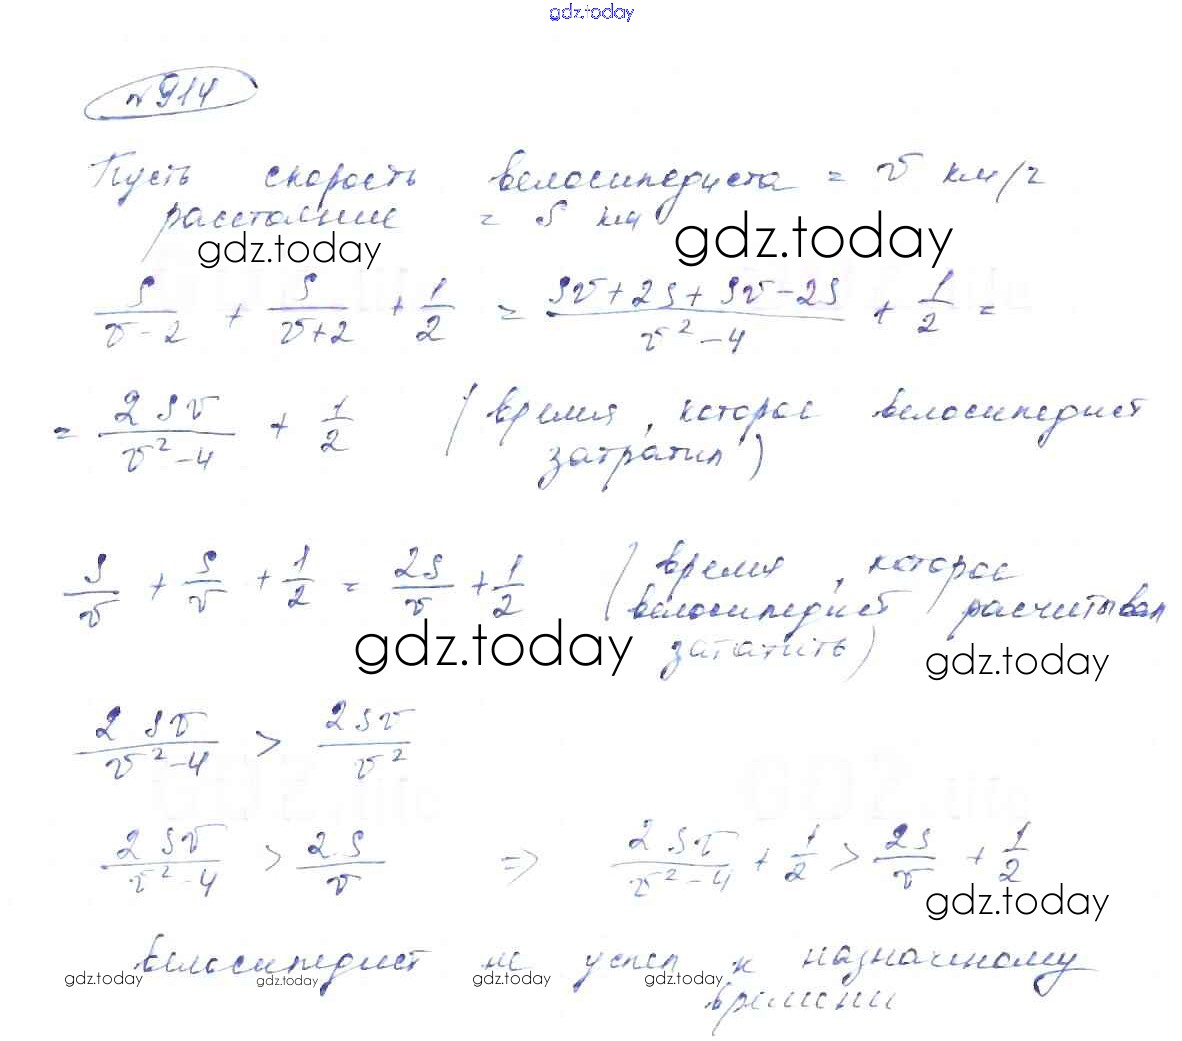 gdz.today
№ 914
Пусть скорость велосипедиста = v км/ч
расстояние = s км
gdz.today gdz.today
s/(v-2) + s/(v+2) + 1/2 = (sv+2s+sv-2s)/(v²-4) + 1/2 =
= 2sv/(v²-4) + 1/2 (время, которое велосипедист
затратил)
s/v + s/v + 1/2 = 2s/v + 1/2 (время, которое
велосипедист расчитывал
gdz.today зататить) gdz.today
2sv/(v²-4) > 2sv/v²
2sv/(v²-4) > 2s/v => 2sv/(v²-4) + 1/2 > 2s/v + 1/2
gdz.today
велосипедист не успел к назначенному
gdz.today gdz.today gdz.today gdz.today
времени